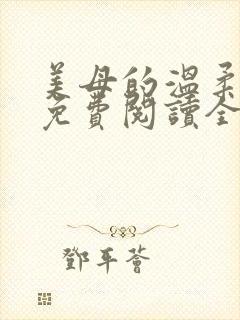 美母的温柔
免費閱讀全
鄧平薈